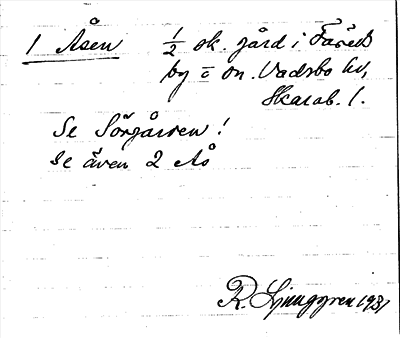 1 Åsen ½ sk. gård i Fåreds
by o sn. Vadsbo hd,
Skarab. l.
Se Sörgården!
Se även 2 Ås
R. Ljunggren 1931